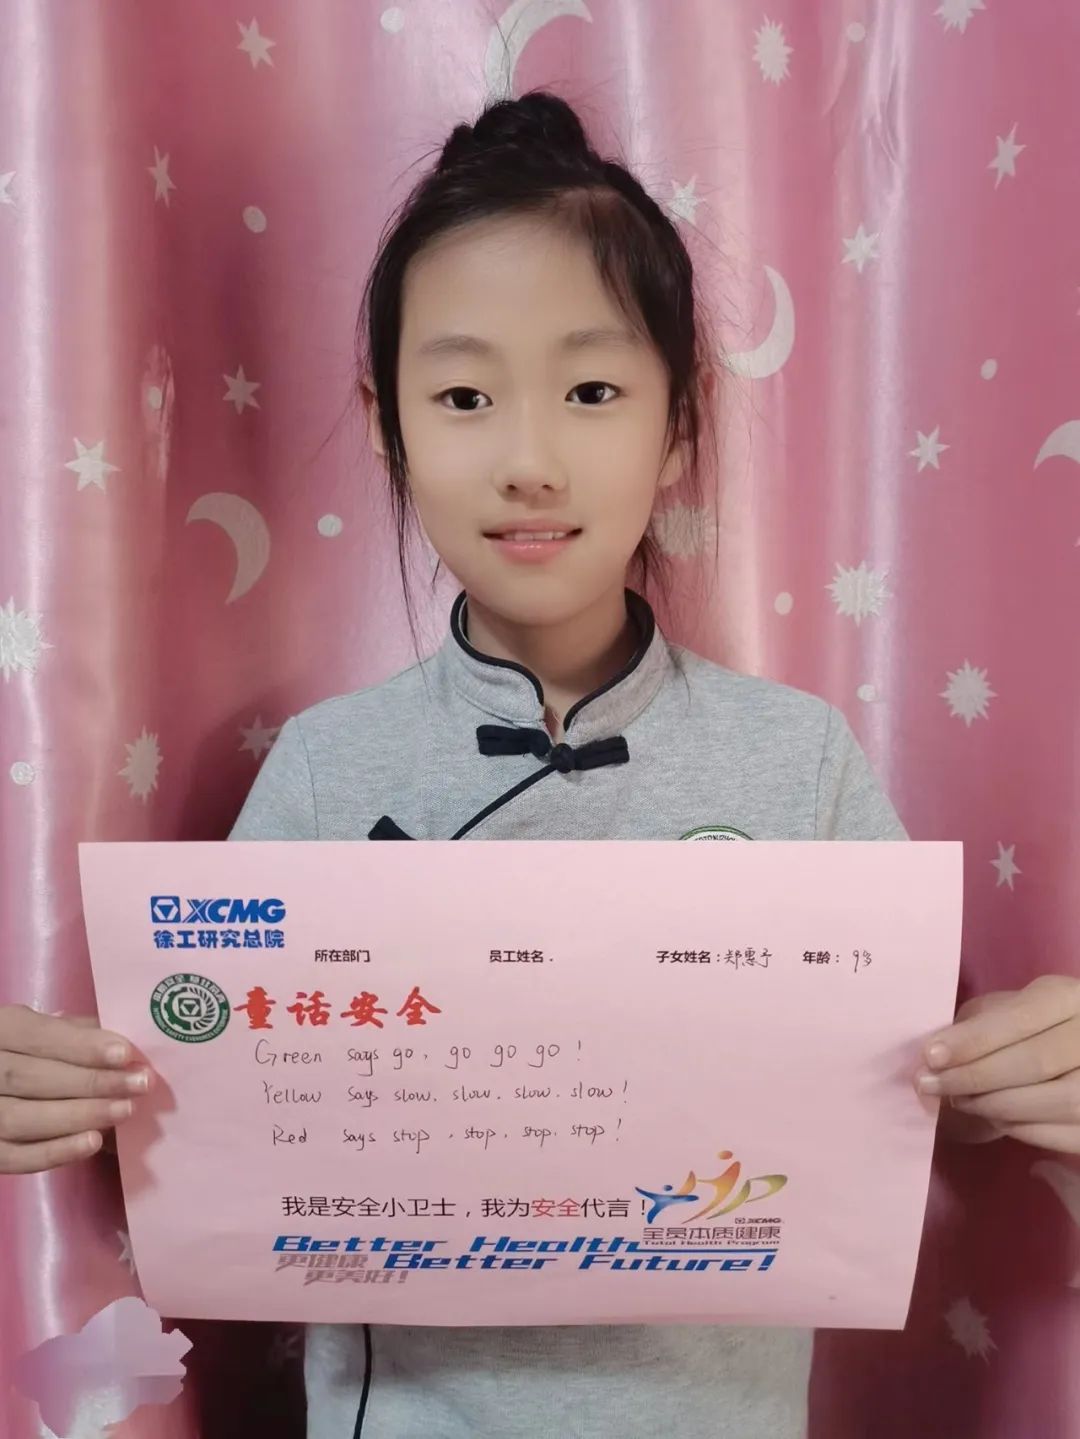 XCMG
徐工研究总院
所在部门 员工姓名. 子女姓名:郑惠予 年龄:9岁
童话安全
Green says go, go go go!
Yellow says slow. slow. slow. slow!
Red says stop, stop, stop. stop!
我是安全小卫士，我为安全代言！
XCMG
全员本质健康
Total Health Program
Better Health
更健康 Better Future!
更美好!